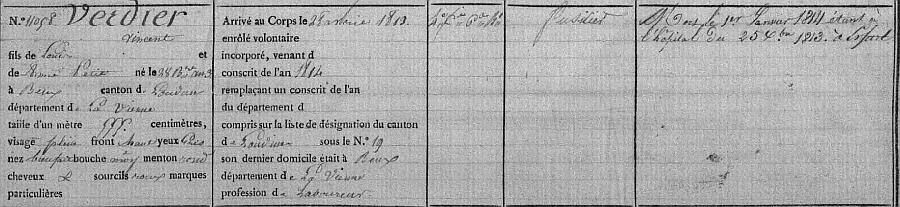 N.° 11058 Verdier
Vincent
fils de Louis et
de Anne Petit né le 28 Bre an 3
à Beux canton de Loudun
département de La Vienne
taille d'un mètre 555. centimètres,
visage plein front haut yeux gris
nez bouche moy menton rond
cheveux & sourcils roux marques
particulières
Arrivé au Corps le 1813.
enrôlé volontaire
incorporé, venant d
conscrit de l'an 1814
remplaçant un conscrit de l'an
du département d
compris sur la liste de désignation du canton
de Loudun sous le N.° 19
son dernier domicile était à Beux
département de La Vienne
profession de Laboureur
Fusilier
Mort le 1er Janvier 1814 étant à
l'hôpital du 25 Xbre 1813. à